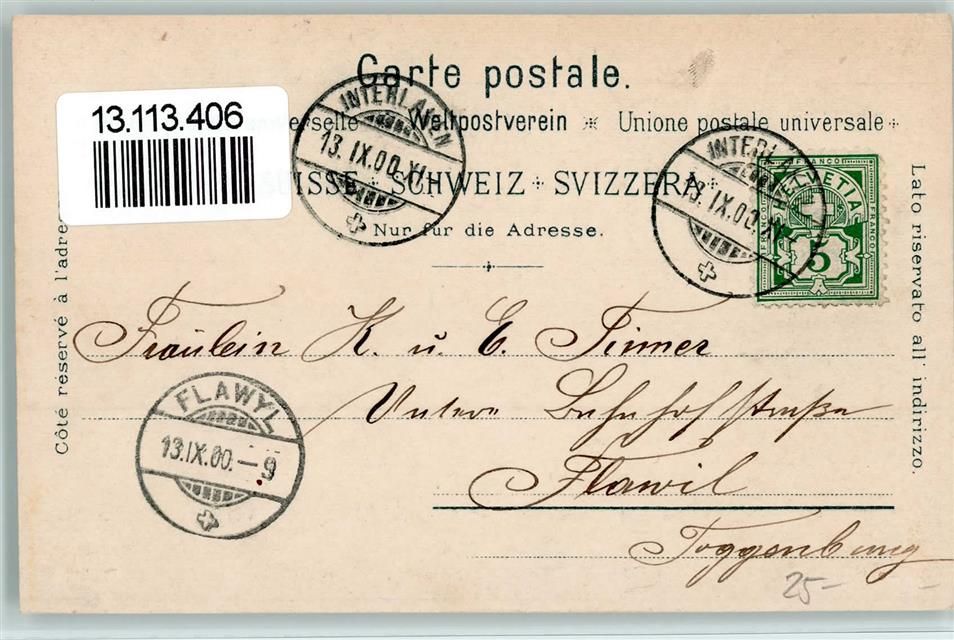 Carte postale.
13.113.406
Weltpostverein ※ Unione postale universale
SUISSE + SCHWEIZ + SVIZZERA
Nur für die Adresse.
INTERLAKEN
13.IX.00.XI
INTERLAKEN
13.IX.00.XI
FRANCO
HELVETIA
FRANCO
5
Côté réservé à l'adre
Lato riservato all' indirizzo.
Fräulein K. u. E.
Untere Bahnhofstraße
Flawil
Toggenburg
FLAWYL
13.IX.00.-9
25-